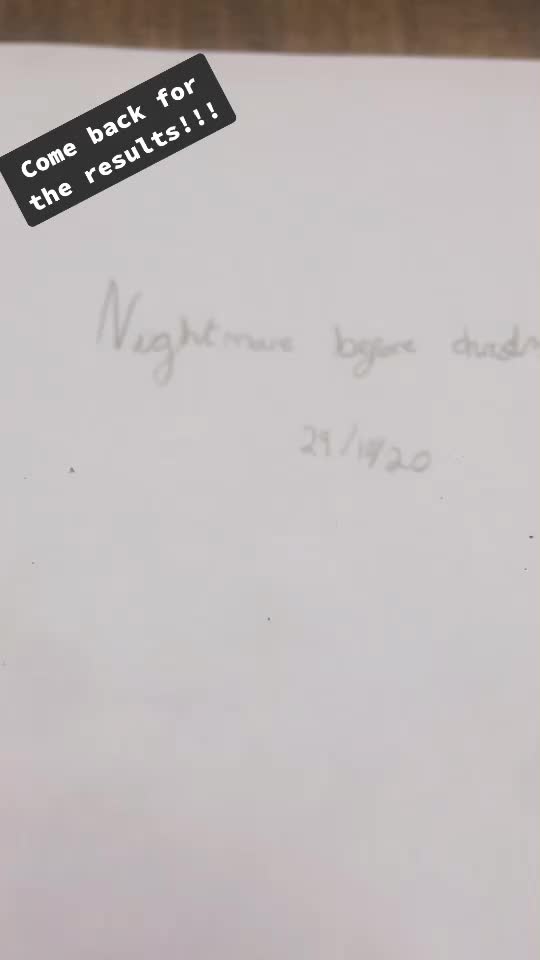 Come back for
the results!!!
Nightmare before
29/10/20